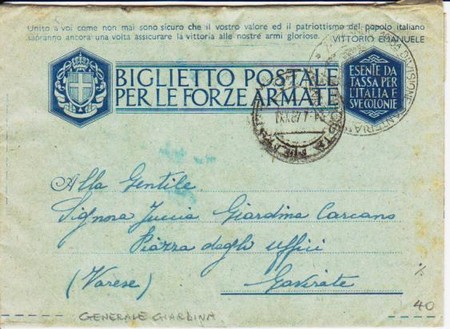 Unito a voi come non mai sono sicuro che il vostro valore ed il patriottismo del popolo italiano
sapranno ancora una volta assicurare la vittoria alle nostre armi gloriose. VITTORIO EMANUELE
BIGLIETTO POSTALE
PER LE FORZE ARMATE
ESENTE DA
TASSA PER
L'ITALIA E
SVE COLONIE
POSTA
DIVISIONE FANTERIA
Alla Gentile
Signora Giardina Carcano
Piazza degli Uffici
(Varese) Gavirate
GENERALE GIARDINA
40